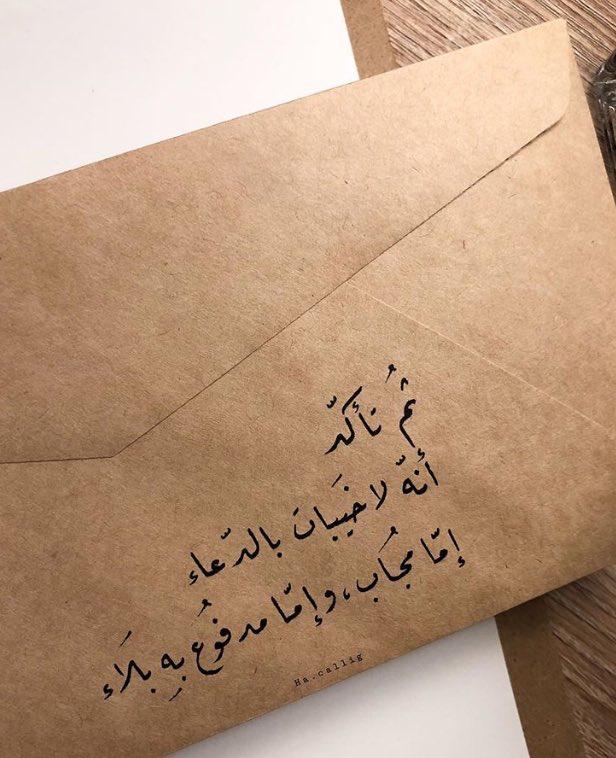 ثُم تأكّد
أنّه لا خَيبات بالدّعاء
إمّا مجُاَب، وإمّا مدفوُع بِهِ بلَاء
Ha.callig